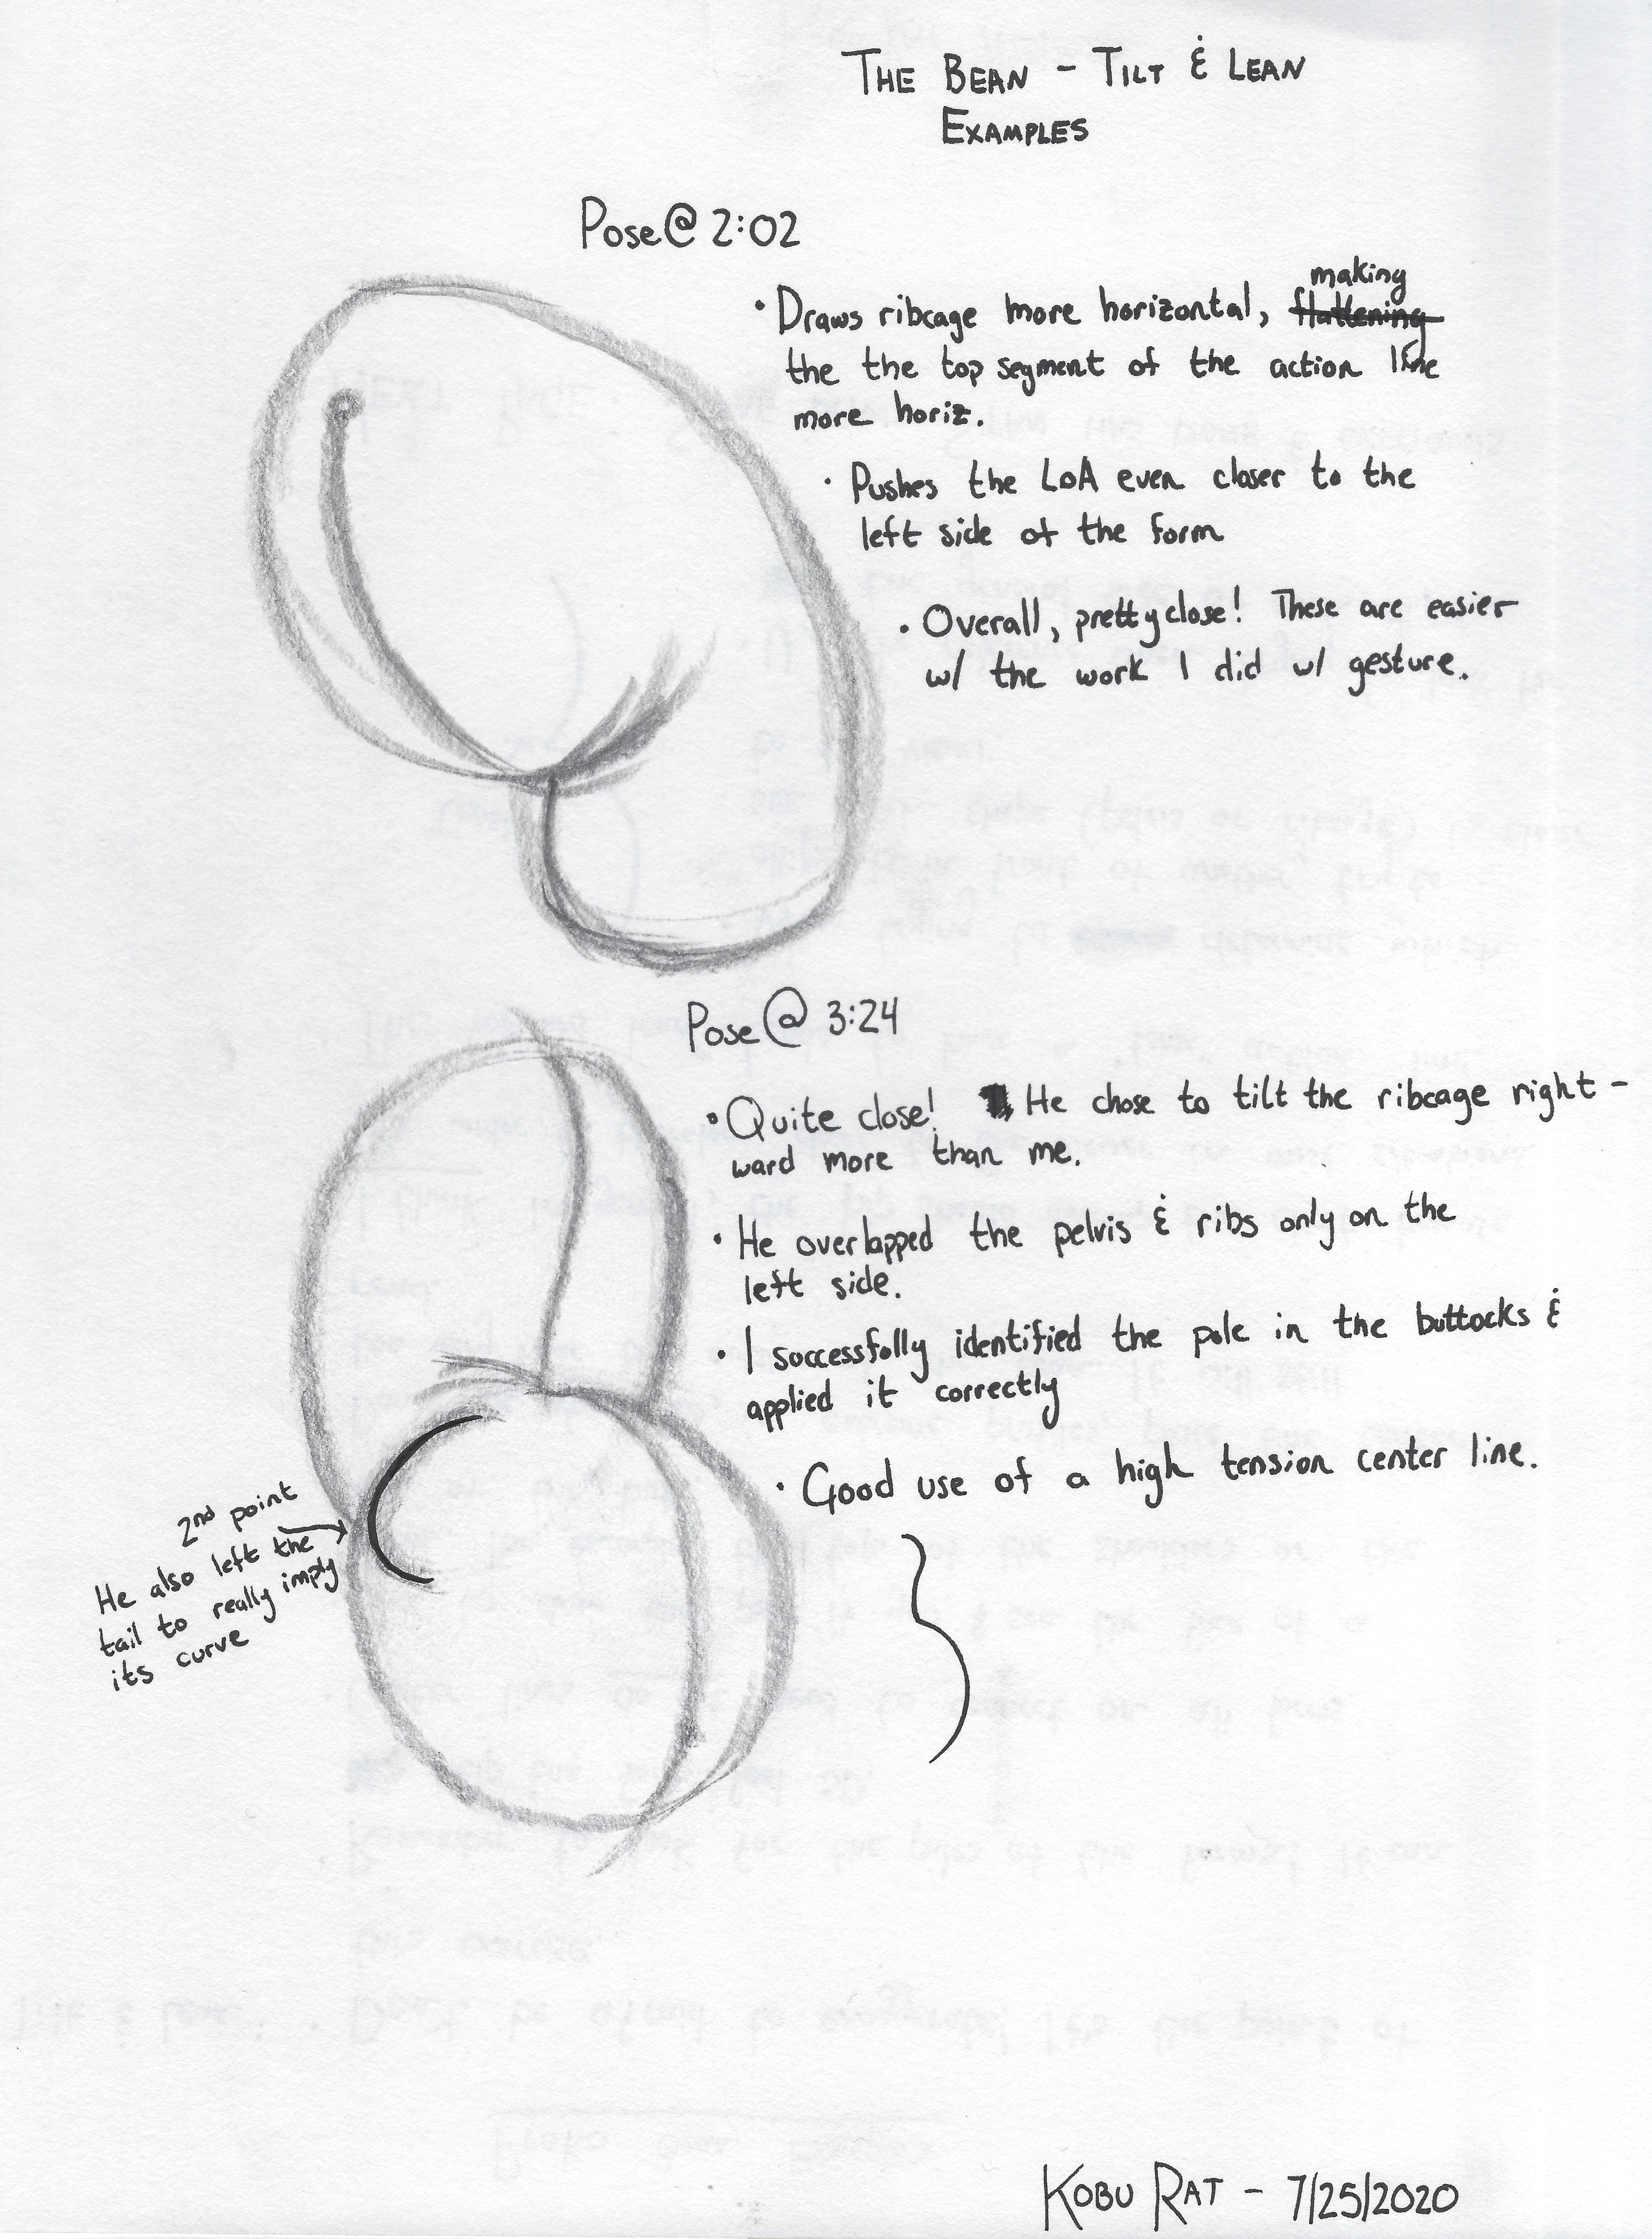 THE BEAN - TILT & LEAN
EXAMPLES
Pose @ 2:02
making
• Draws ribcage more horizontal, flattening
the the top segment of the action line
more horiz.
• Pushes the LoA even closer to the
left side of the form
• Overall, pretty close! These are easier
w/ the work I did w/ gesture.
Pose @ 3:24
• Quite close! He chose to tilt the ribcage right-
ward more than me.
• He overlapped the pelvis & ribs only on the
left side.
• I successfully identified the pole in the buttocks &
applied it correctly
• Good use of a high tension center line.
2nd point
He also left the
tail to really imply
its curve
KOBU RAT - 7/25/2020